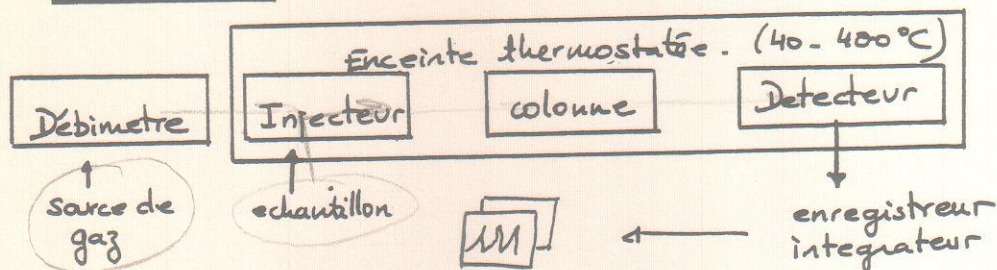 Enceinte thermostatée. (40-400°C)
Débimetre
Injecteur
colonne
Detecteur
source de
gaz
echantillon
enregistreur
integrateur